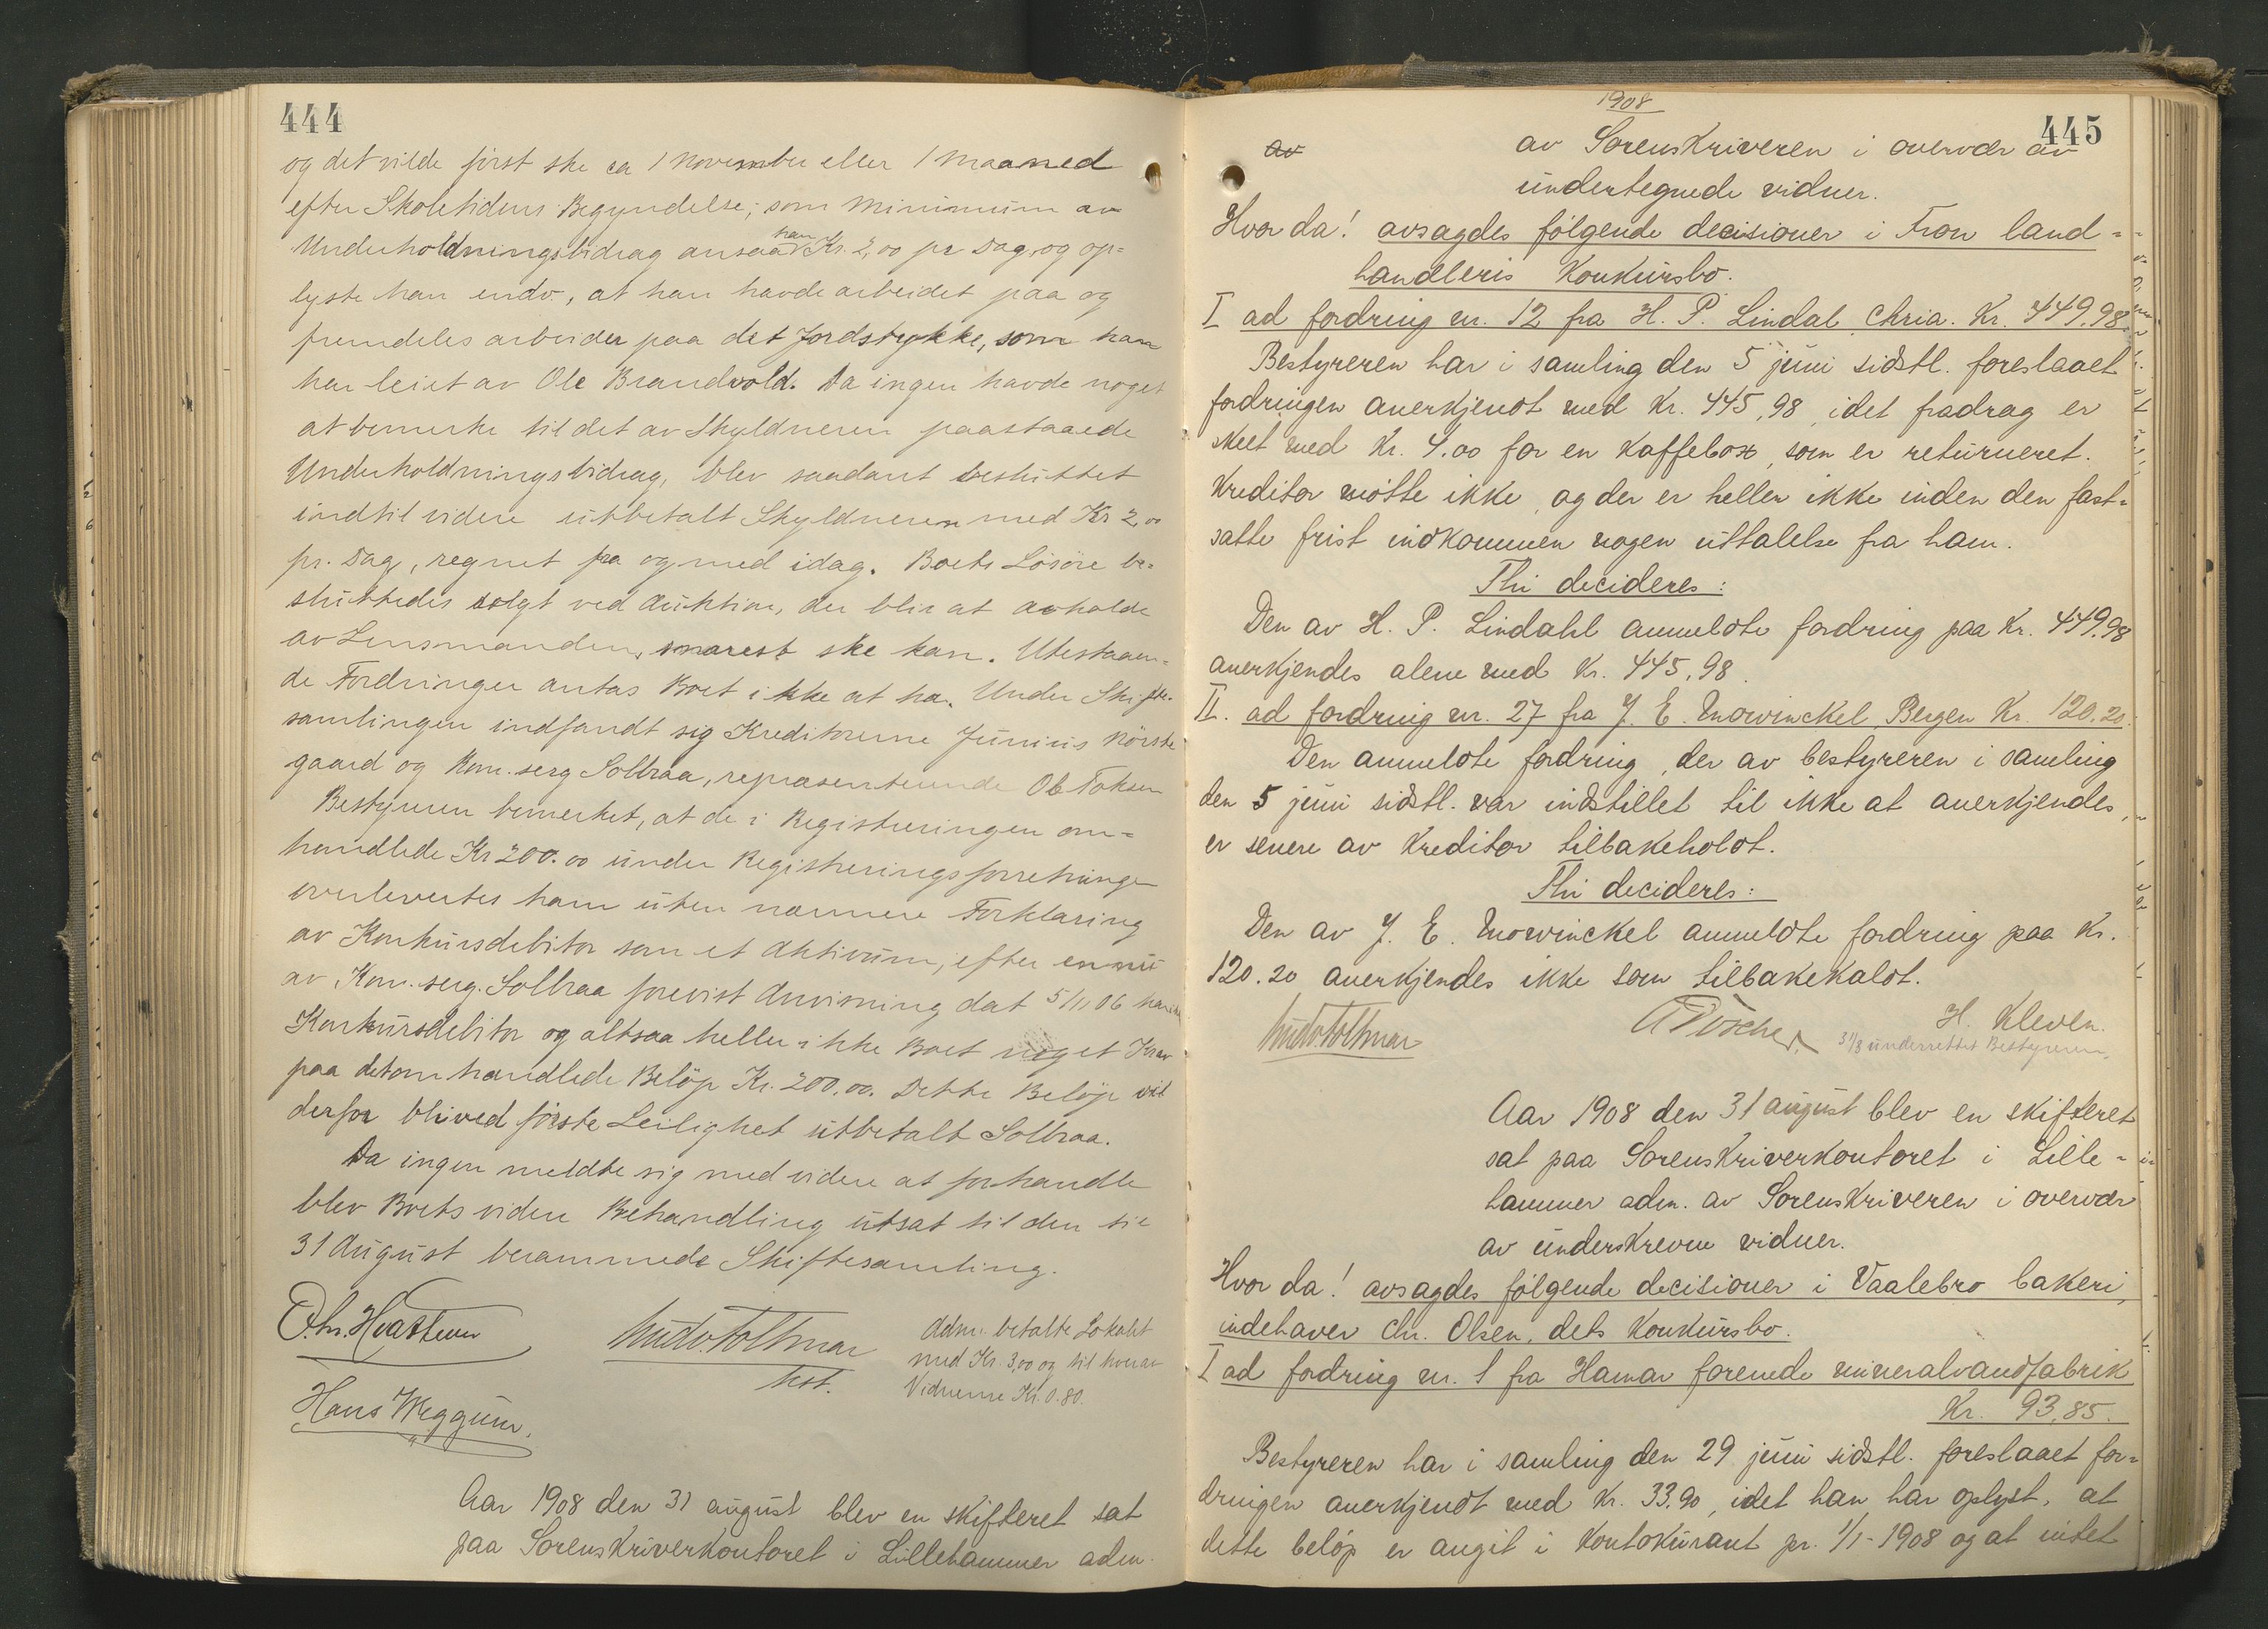 444
og det vilde først ske ca 1 november eller 1 maaned
efter Skoletidens Begyndelse; som minimum av
Underholdningsbidrag ansaa han Kr. 2,00 pr Dag, og op=
lyste han endv., at han havde arbeidet paa og
fremdeles arbeider paa det Jordstykke, som han
har leiet av Ole Brandvold. Da ingen havde noget
at bemerke til det av Skyldneren paastaaede
Underholdningsbidrag, blev saadant besluttet
indtil videre utbetalt Skyldneren med Kr 2,00
pr. Dag, regnet fra og med idag. Boets Løsøre be=
sluttedes solgt ved Auktion, der blir at avholde
av Lensmanden, snarest ske kan. Utestaaen=
de Fordringer antas Boet ikke at ha. Under Skifte=
samlingen indfandt sig Kreditorerne Junius Nørste
gaard og Kom. serg Solbraa, repræsenterende Ole Toksen
Bestyreren bemerket, at de i Registreringen om=
handlede Kr 200.00 under Registreringsforretningen
overlevertes ham uten nærmere Forklaring
av Konkursdebitor som et Aktivum, efter en nu
av Kom. serg. Solbraa forevist Anvisning dat 5/11 06 har
Konkursdebitor og altsaa heller ikke Boet noget Krav
paa det omhandlede Beløp Kr. 200.00. Dette Beløp vil
derfor bli ved første Leilighet utbetalt Solbraa.
Da ingen meldte sig med videre at forhandle
blev Boets videre Behandling utsat til den til
31 August berammede Skiftesamling.
Adm. betalte Lokalet
med Kr. 3,00 og til hver av
Vidnerne Kr. 0.80.
kst.
Hans Weggum.
Aar 1908 den 31 august blev en skifteret sat
paa Sorenskriverkontoret i Lillehammer adm.
1908
445
av
av Sorenskriveren i overvær av
undertegnede vidner.
Hvor da! avsagdes følgende decisioner i Fron land=
handleris konkursbo.
I ad fordring nr. 12 fra H. P. Lindal, Chria. Kr. 449,98.
Bestyreren har i samling den 5 juni sidstl. foreslaaet
fordringen anerkjendt med Kr. 445,98, idet fradrag er
skeet med Kr. 4.00 for en kaffebox, som er returneret.
Kreditor møtte ikke, og der er heller ikke inden den fast=
satte frist indkommen nogen uttalelse fra ham.
Thi decideres:
Den av H. P. Lindahl anmeldte fordring paa Kr. 449.98
anerkjendes alene med Kr. 445,98.
II. ad fordring nr. 27 fra J. E. Mowinckel, Bergen Kr. 120.20.
Den anmeldte fordring, der av bestyreren i samling
den 5 juni sidstl. var indstillet til ikke at anerkjendes,
er senere av kreditor tilbakeholdt.
Thi decideres:
Den av J. E. Mowinckel anmeldte fordring paa Kr.
120.20 anerkjendes ikke som tilbakekaldt.
H. Kleven.
31/8 underrettet Bestyreren.
Aar 1908 den 31 august blev en skifteret
sat paa Sorenskriverkontoret i Lille=
hammer adm. av Sorenskriveren i overvær
av underskrevne vidner.
Hvor da! avsagdes følgende decisioner i Vaalebro bakeri,
indehaver Chr. Olsen, dets konkursbo.
I ad fordring nr. 1 fra Hamar forenede mineralvandfabrik
Kr. 93,85.
Bestyreren har i samling den 29 juni sidstl. foreslaaet for=
dringen anerkjendt med Kr. 33.90, idet han har oplyst, at
dette beløp er angit i kontokurant pr. 1/1-1908 og at intet